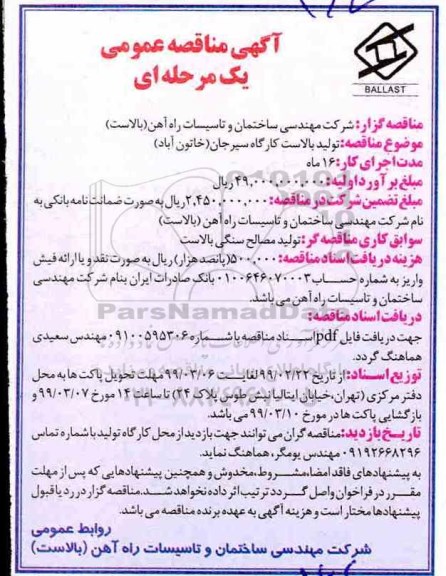 BALLAST
آگهی مناقصه عمومی
یک مرحله ای
مناقصه گزار: شرکت مهندسی ساختمان و تاسیسات راه آهن(بالاست)
موضوع مناقصه: تولید بالاست کارگاه سیرجان(خاتون آباد)
مدت اجرای کار: ۱۶ ماه
مبلغ برآورد اولیه: ۴۹,۰۰۰,۰۰۰,۰۰۰ ریال
مبلغ تضمین شرکت در مناقصه: ۲,۴۵۰,۰۰۰,۰۰۰ ریال به صورت ضمانت نامه بانکی به
نام شرکت مهندسی ساختمان و تاسیسات راه آهن (بالاست)
سوابق کاری مناقصه گر: تولید مصالح سنگی بالاست
هزینه دریافت اسناد مناقصه: ۵۰۰,۰۰۰(پانصد هزار) ریال به صورت نقد و یا ارائه فیش
واریز به شماره حساب ۰۱۰۰۶۴۶۰۷۰۰۰۳ بانک صادرات ایران بنام شرکت مهندسی
ساختمان و تاسیسات راه آهن می باشد.
ParsNamadData
دریافت اسناد مناقصه:
جهت دریافت فایل pdf اسناد مناقصه با شماره ۰۹۱۰۰۵۹۵۳۰۶ مهندس سعیدی
هماهنگ گردد.
توزیع اسناد: از تاریخ ۹۹/۰۲/۲۲ لغایت ۹۹/۰۳/۰۶ مهلت تحویل پاکت ها به محل
دفتر مرکزی (تهران،خیابان ایتالیا نبش طوس پلاک ۲۴) تا ساعت ۱۴ مورخ ۹۹/۰۳/۰۷ و
بازگشایی پاکت ها در مورخ ۹۹/۰۳/۱۰ می باشد.
تاریخ بازدید: مناقصه گران می توانند جهت بازدید از محل کارگاه تولید با شماره تماس
۰۹۱۹۲۶۶۸۲۹۶ مهندس یومگر، هماهنگ نماید.
به پیشنهادهای فاقد امضا،مشروط،مخدوش و همچنین پیشنهادهایی که پس از مهلت
مقرر در فراخوان واصل گردد ترتیب اثر داده نخواهد شد.مناقصه گزار در رد یا قبول
پیشنهادها مختار است و هزینه آگهی به عهده برنده مناقصه می باشد.
روابط عمومی
شرکت مهندسی ساختمان و تاسیسات راه آهن (بالاست)